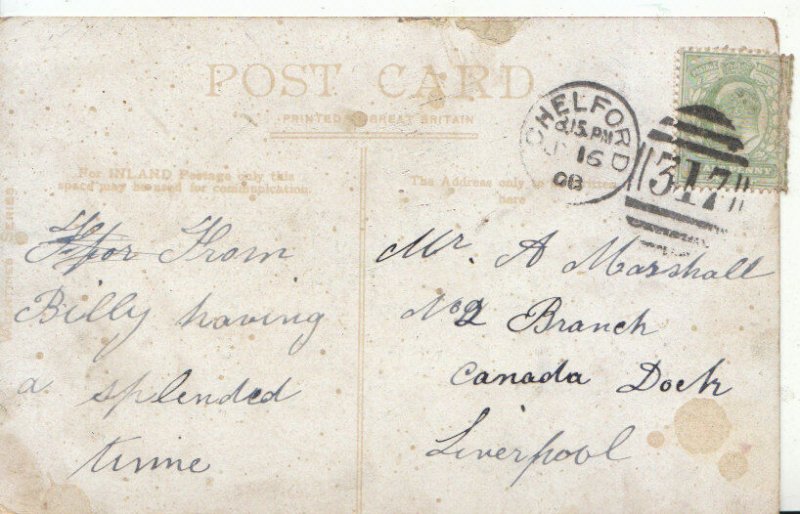 POST CARD
PRINTED GREAT BRITAIN
For INLAND Postage only this
space may be used for communication
The Address only to be written
here
CHELFORD
8.15.PM
16
08
317
PENNY
From
Billy having
a splended
time
Mr. A Marshall
No 2 Branch
Canada Dock
Liverpool
SERIES